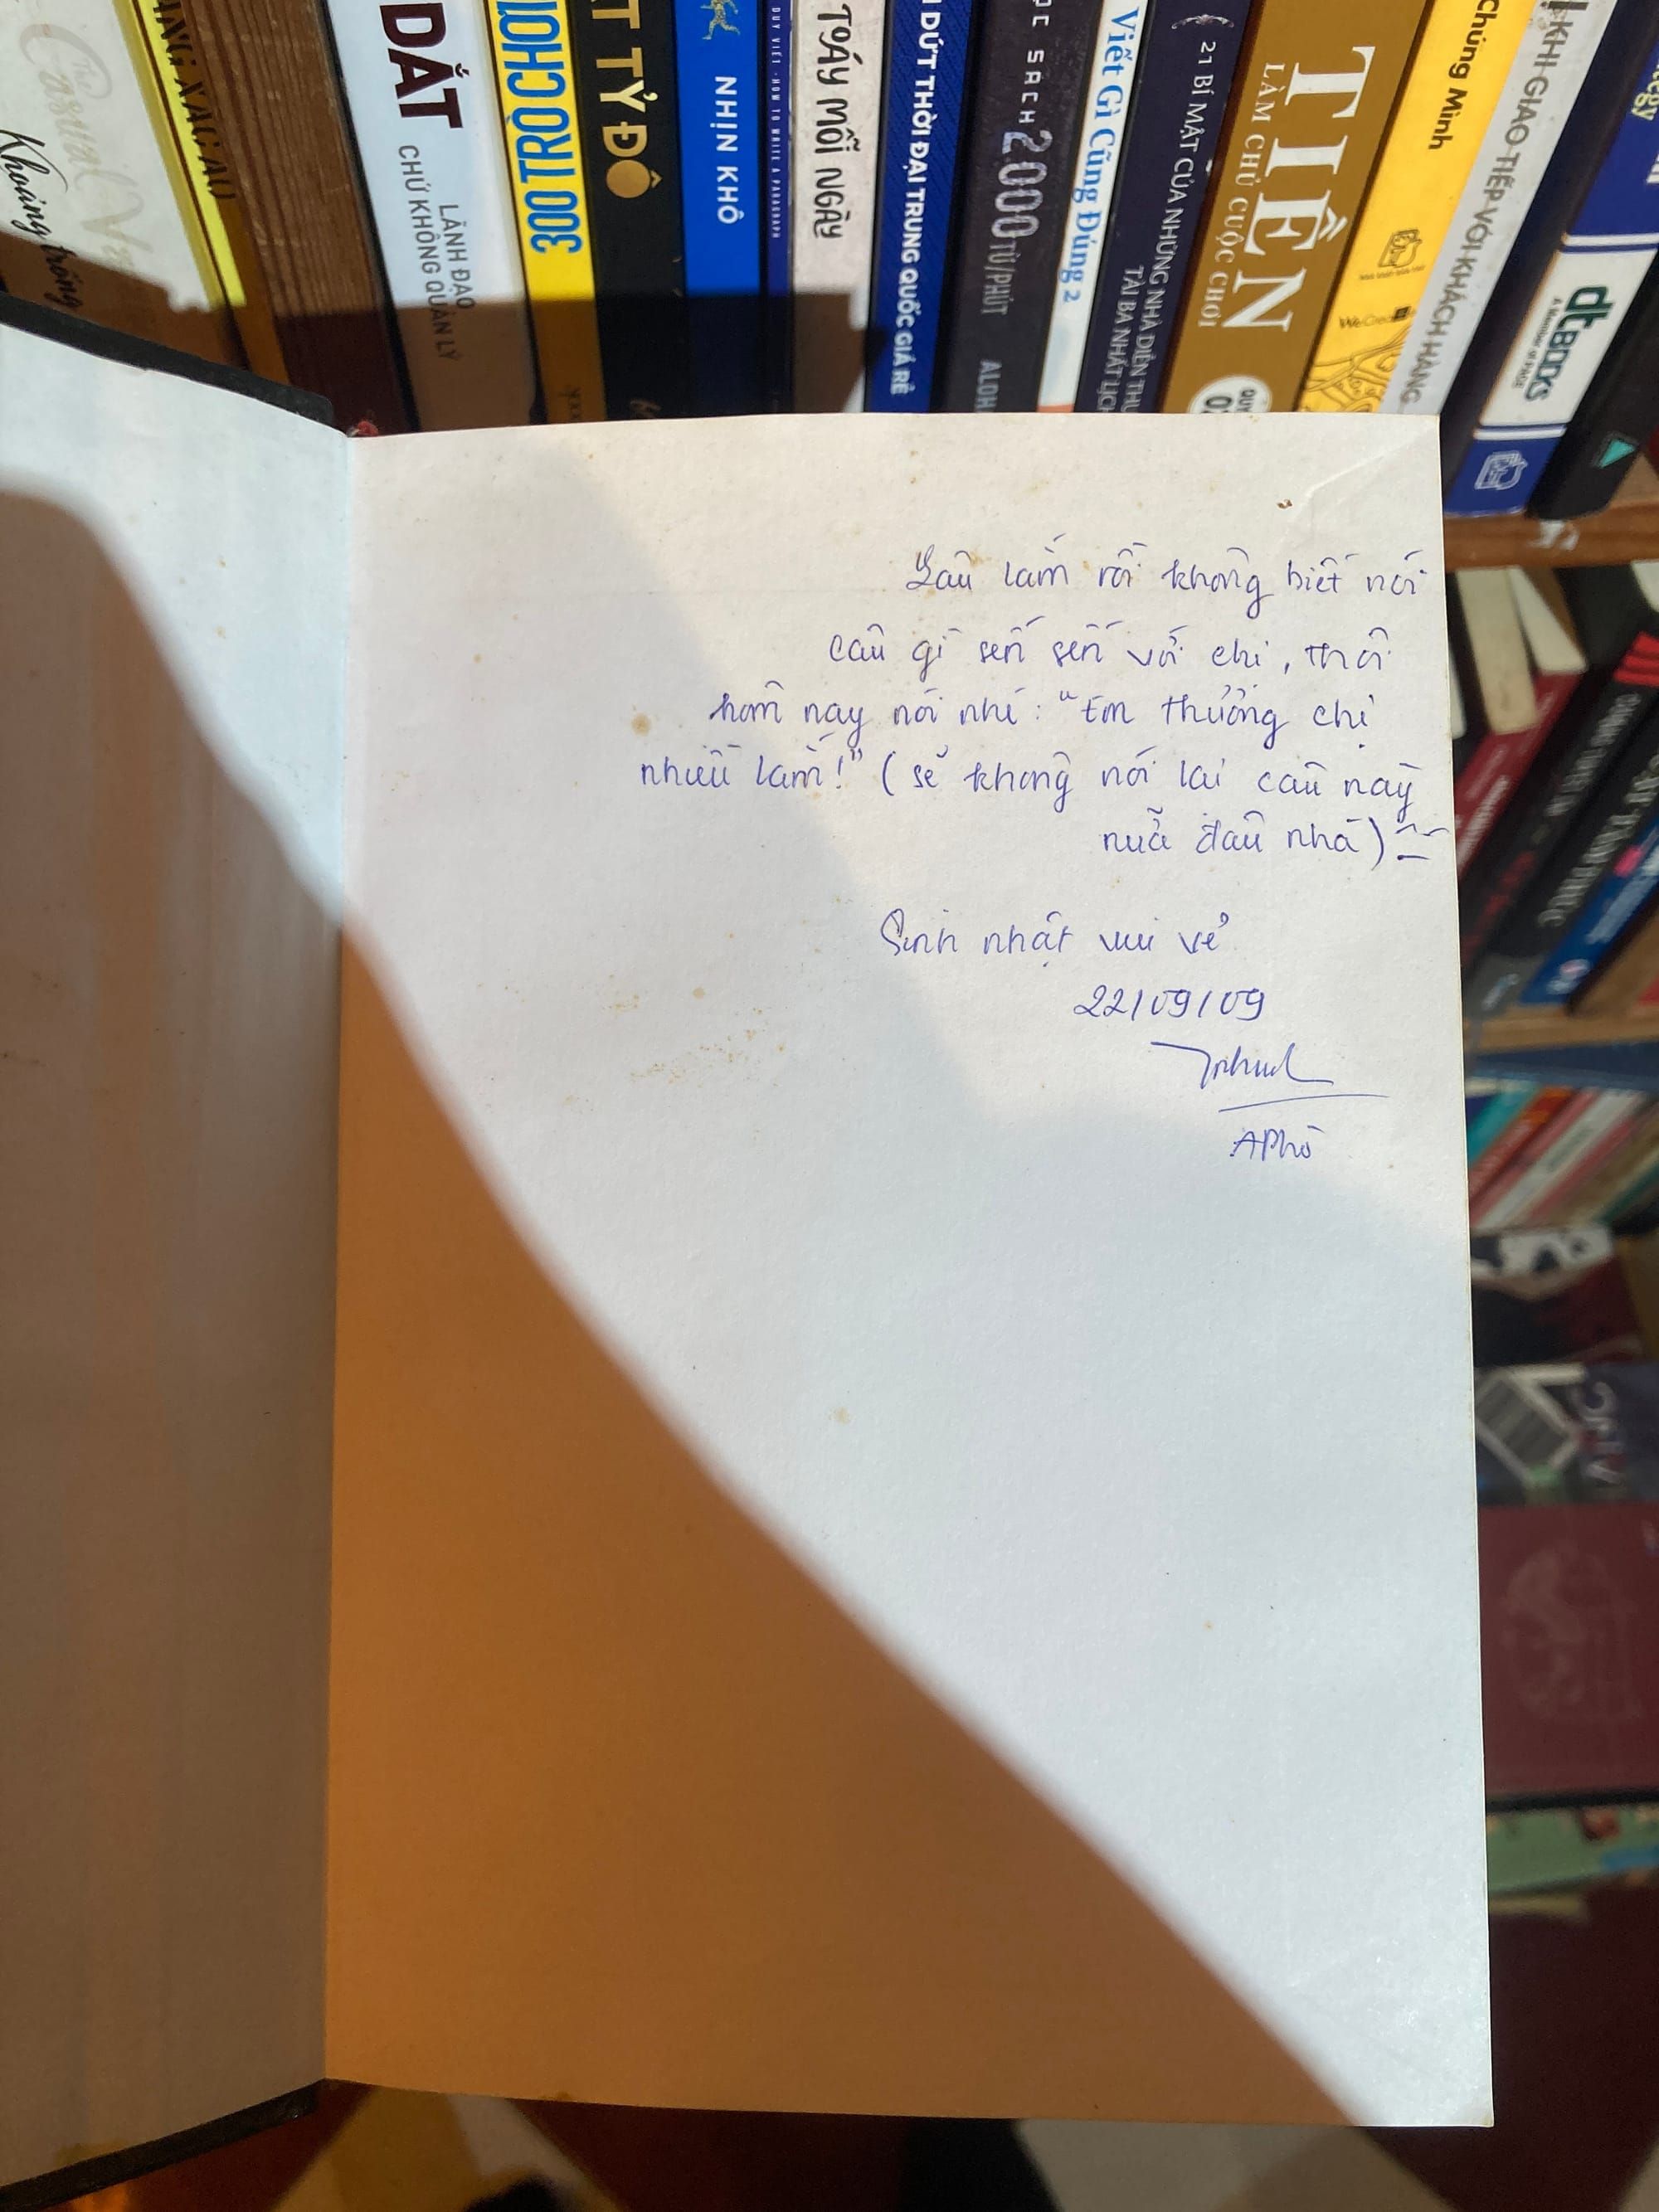 Casual Va
Khoảng trống
DẮT
LÃNH ĐẠO
CHỨ KHÔNG QUẢN LÝ
300 TRÒ CHƠI
TỶ ĐÔ
NHỊN KHÔ
DUY VIỆT · HOW TO WRITE A PARAGRAPH
TOÁY MỖI NGÀY
DỨT THỜI ĐẠI TRUNG QUỐC GIÁ RẺ
SÁCH 2000 TỪ/PHÚT
ALOH
Viết Gì Cũng Đúng 2
21 BÍ MẬT CỦA NHỮNG NHÀ DIỄN THU
TÀI BA NHẤT LỊCH
TIỀN
LÀM CHỦ CUỘC CHƠI
Chứng Minh
KHI GIAO TIẾP VỚI KHÁCH HÀNG
dtBOOKS
A Member of PACE
Lâu lắm rồi không biết nói
câu gì sến sến với chị, thôi
hôm nay nói nhé: "Em thương chị
nhiều lắm!" (sẽ không nói lại câu này
nữa đâu nha) ^_^
Sinh nhật vui vẻ
22/09/09
APhò